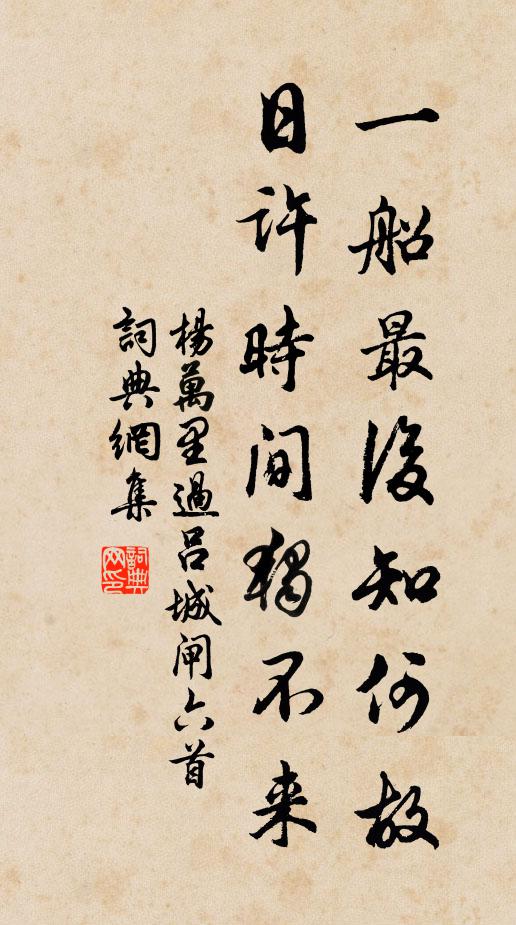 一船最後知何故
日許時間獨不来
楊萬里過呂城闸六首
詞典網集
詞典网印